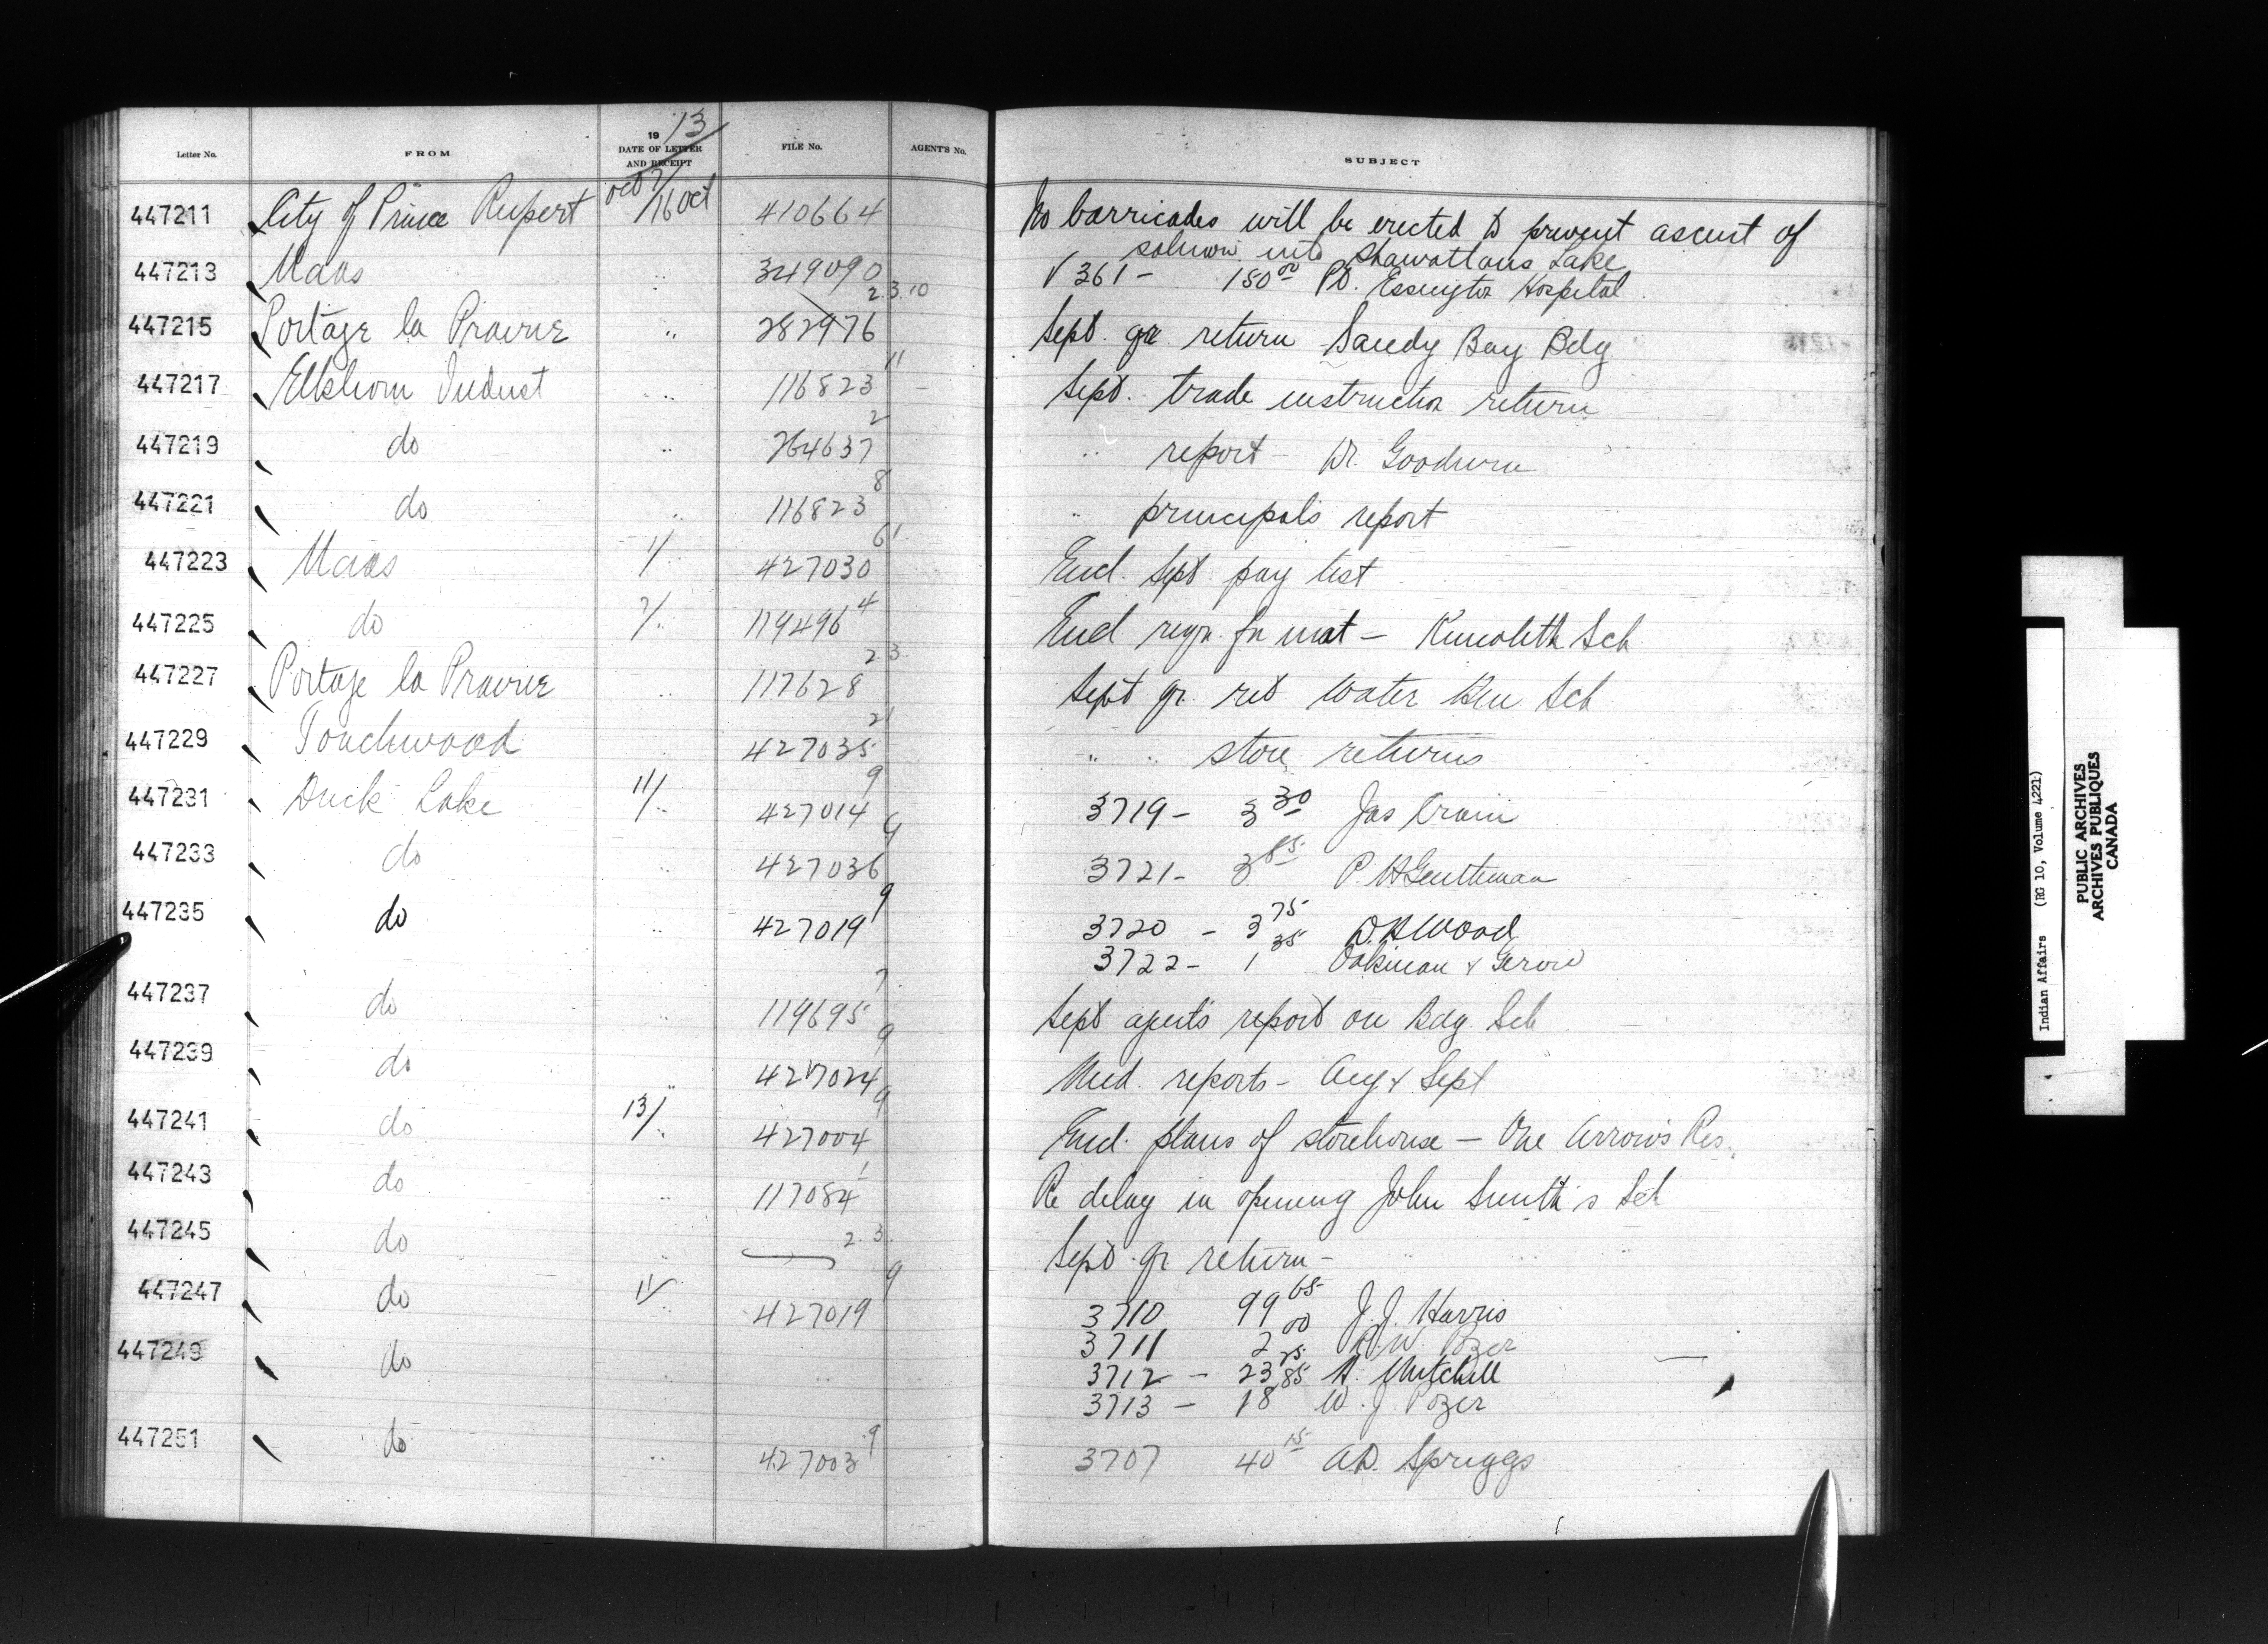 19 13
Letter No. FROM DATE OF LETTER AND RECEIPT FILE No. AGENT'S No. SUBJECT
447211 City of Prince Rupert Oct 7/16 Oct 410664 No barricades will be erected to prevent ascent of
salmon into Shawatlans Lake
447213 Naas " 349090 V 361 - 150 00 Pt. Essington Hospital
447215 Portage la Prairie " 282976 2.3.10 Sept. qr. return Sandy Bay Bdg
447217 Elkhorn Indust " 116823 11 Sept. trade instruction return
447219 do " 264637 2 " report - Dr. Goodwin
447221 do " 116823 8 " principals report
447223 Naas 1/" 427030 61 Encl. Sept pay list
447225 do 7/" 119496 4 Encl. reqn. for mat - Kincolith Sch
447227 Portage la Prairie " 117628 2.3. Sept qr. ret Water Hen Sch
447229 Touchwood " 427035 21 " " store returns
447231 Duck Lake 11/" 427014 9 3719 - 3 30 Jas Crain
447233 do " 427036 9 3721 - 3 85 P. H Gentleman
447235 do " 427019 9 3720 - 3 75 D. H Wood
3722 - 1 35 Oakman & Gervie
447237 do " 119695 7 Sept agents report on Bdg. Sch
447239 do " 427024 9 Med. reports - Aug & Sept
447241 do 13/" 427004 9 Encl. plans of storehouse - One Arrows Res.
447243 do " 117084 1 Re delay in opening John Smith's Sch
447245 do " 2.3. Sept qr. return - " "
447247 do 11/" 427019 9 3710 99 65 J. J. Harris
3711 2 00 R. W. Pozer
447249 do " " 3712 - 23 25 H. Mitchell
3713 - 18 85 W. J. Pozer
447251 do " 427003 9 3707 40 15 A.D. Spriggs
Indian Affairs (RG 10, Volume 4221)
PUBLIC ARCHIVES
ARCHIVES PUBLIQUES
CANADA